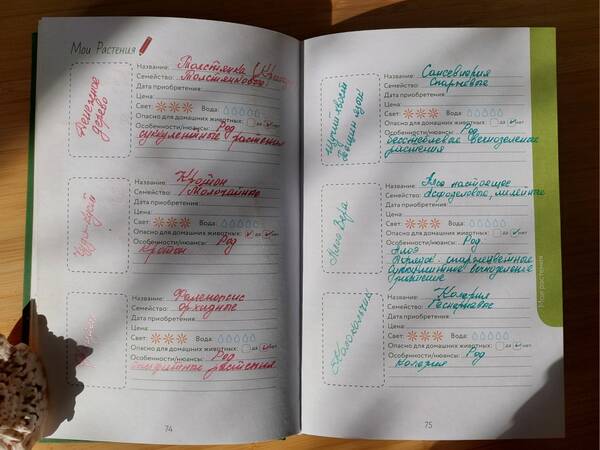 Мои Растения
Денежное
дерево
Название: Толстянка
Семейство: Толстянковые
Дата приобретения:
Цена:
Свет: Вода:
Опасно для домашних животных: да нет
Особенности/нюансы: Род
суккулентные растения
Название: Кротон
Семейство: Молочайные
Дата приобретения:
Цена:
Свет: Вода:
Опасно для домашних животных: да нет
Особенности/нюансы: Род
Кротон
Название: Фаленопсис
Семейство: орхидные
Дата приобретения:
Цена:
Свет: Вода:
Опасно для домашних животных: да нет
Особенности/нюансы: Род
растения
74
Тёщин язык
Название: Сансевиерия
Семейство: Спаржевые
Дата приобретения:
Цена:
Свет: Вода:
Опасно для домашних животных: да нет
Особенности/нюансы: Род
бесстеблевые вечнозеленые
растения
Алоэ Вера
Название: Алоэ настоящее
Семейство: Асфоделовые, лилейные
Дата приобретения:
Цена:
Свет: Вода:
Опасно для домашних животных: да нет
Особенности/нюансы: Род
Алоэ
Порядок - спаржецветные
Суккулентное вечнозеленое
растение
Название: Колерия
Семейство: Геснериевые
Дата приобретения:
Цена:
Свет: Вода:
Опасно для домашних животных: да нет
Особенности/нюансы: Род
Колерия
75
Мои растения